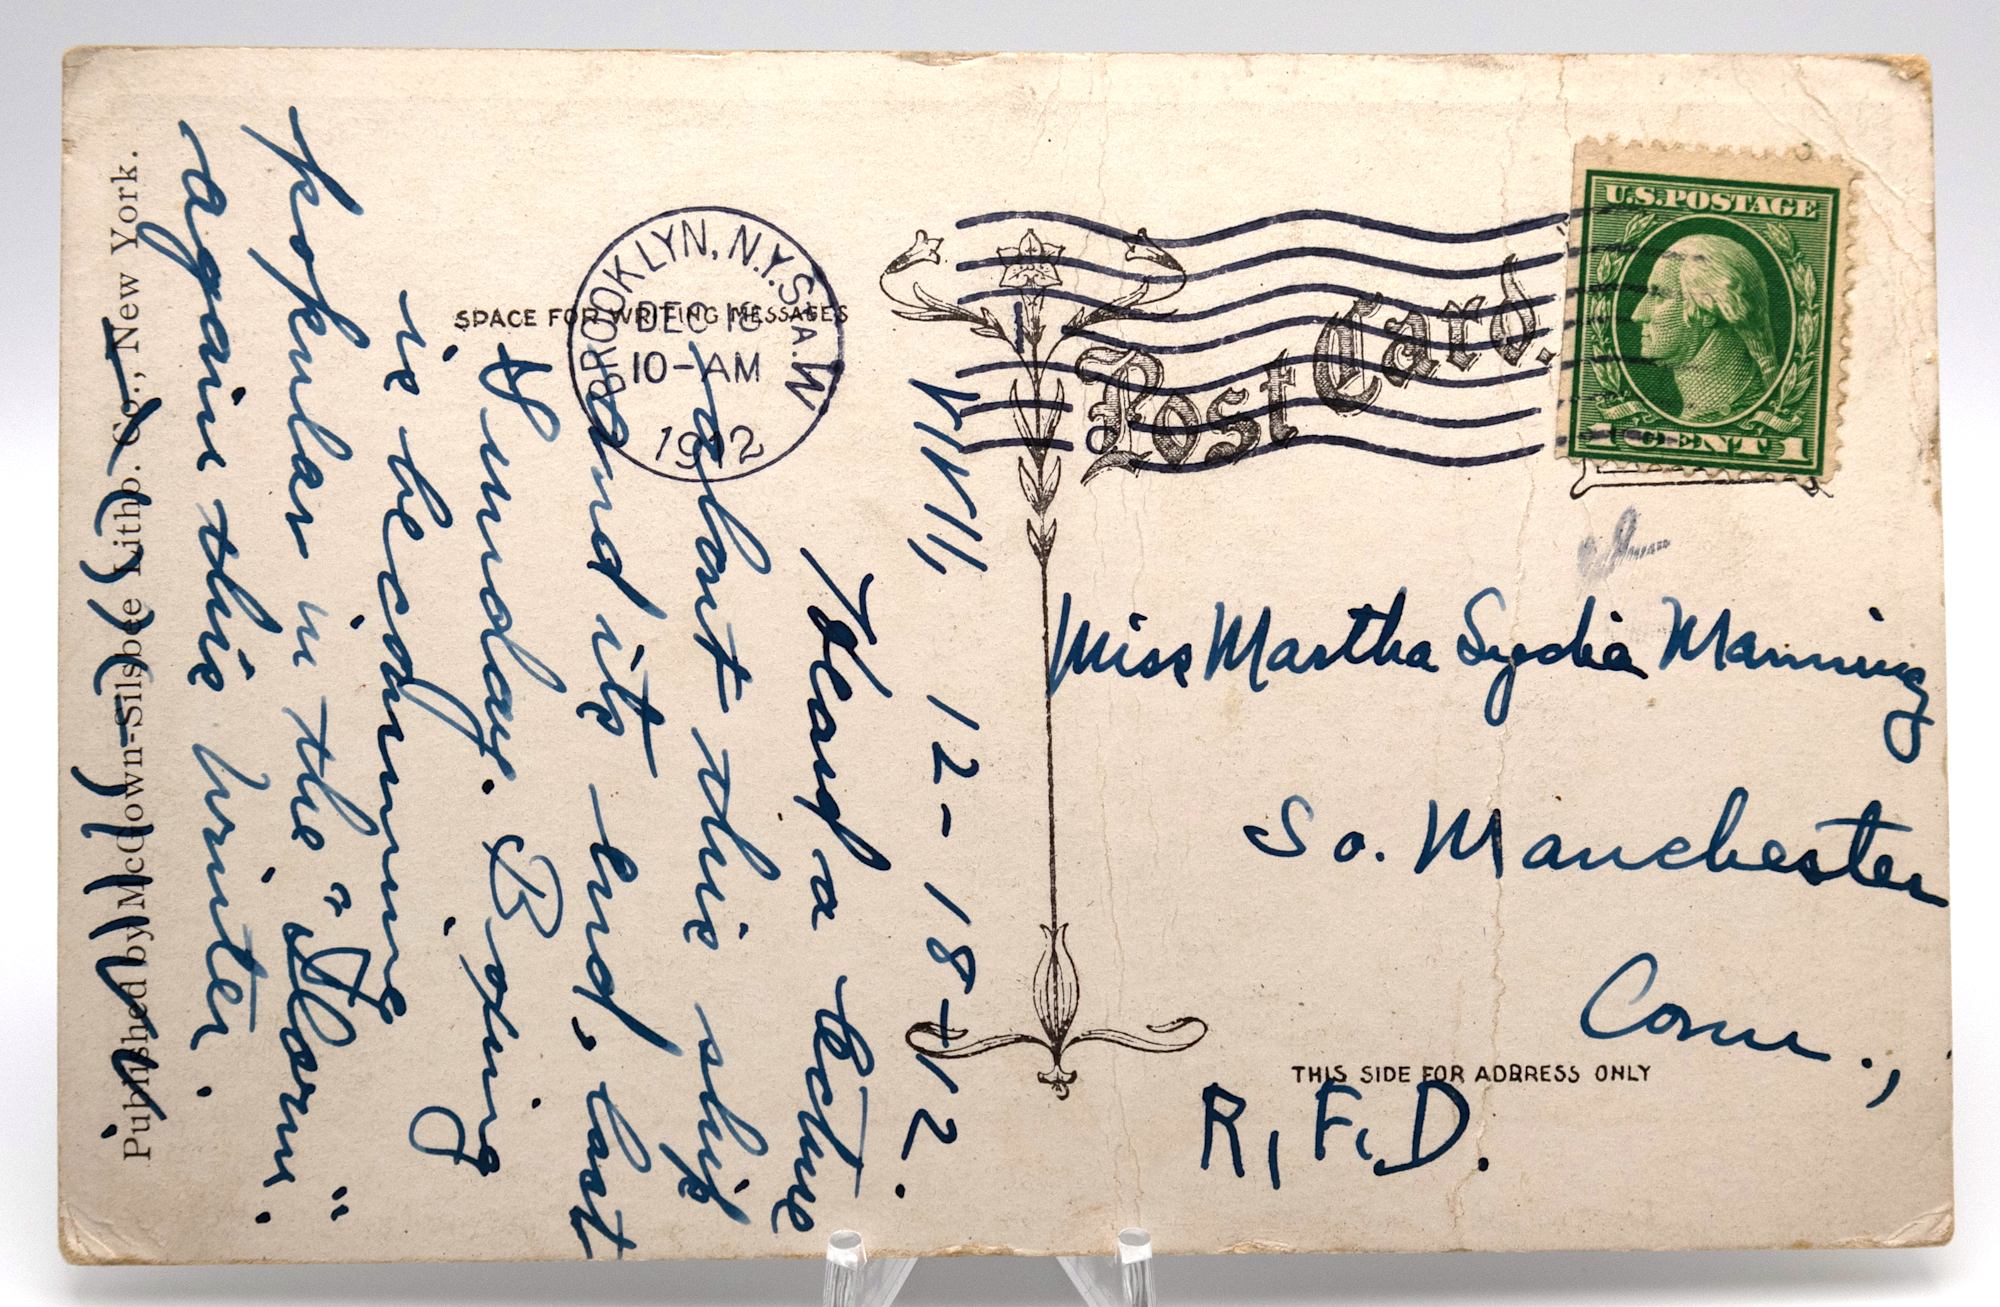 Published by McGown-Silsbee Litho. Co., New York.
SPACE FOR WRITING MESSAGES
BROOKLYN, N.Y. STA. W
DEC 18
10-AM
1912
Post Card.
U.S.POSTAGE
1 CENT 1
12-18-12.
Heard a lecture
about this ship
and its end, last
Sunday. Boxing
is becoming
popular in the "Dorm."
again this winter.
Miss Martha Lydia Manning
So. Manchester
Conn.,
THIS SIDE FOR ADDRESS ONLY
R.F.D.